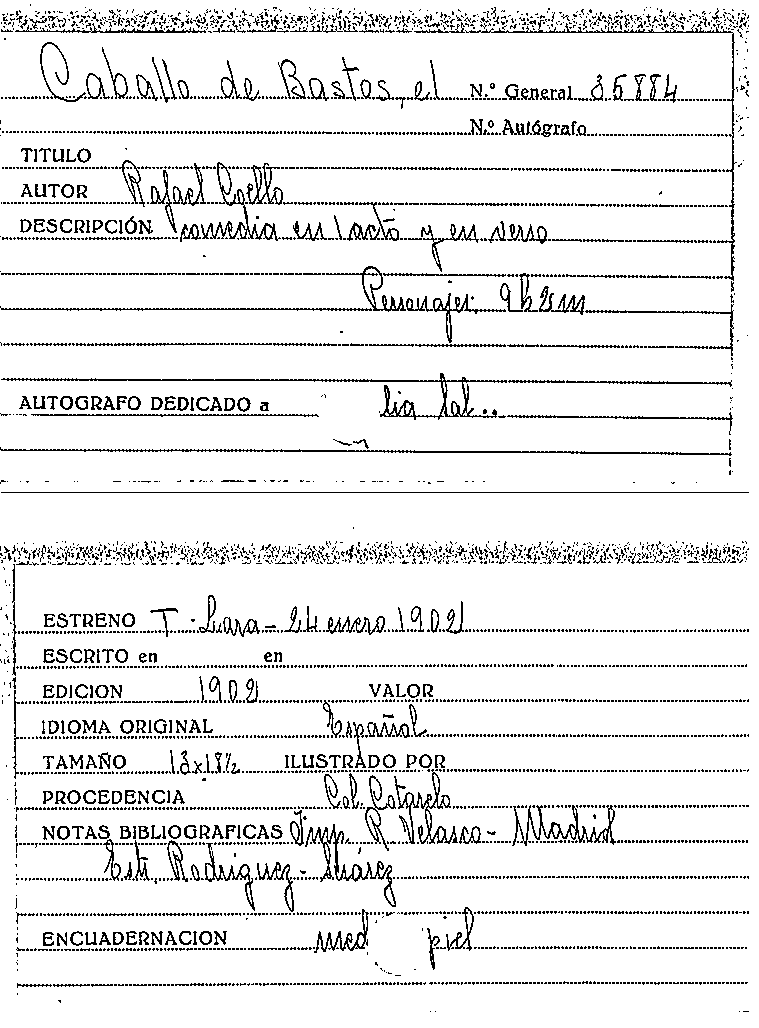 Caballo de Bastos, el N.º General 35884
N.º Autógrafo
TITULO
AUTOR Rafael Coello
DESCRIPCIÓN comedia en 1 acto y en verso
Personajes: 9h 2m
AUTOGRAFO DEDICADO a
ESTRENO T. Lara - 24 enero 1902
ESCRITO en en
EDICION 1902 VALOR
IDIOMA ORIGINAL Español
TAMAÑO 13x18½ ILUSTRADO POR
PROCEDENCIA Col. Cotarelo
NOTAS BIBLIOGRAFICAS Imp. R Velasco - Madrid
Rodriguez - Suárez
ENCUADERNACION med piel